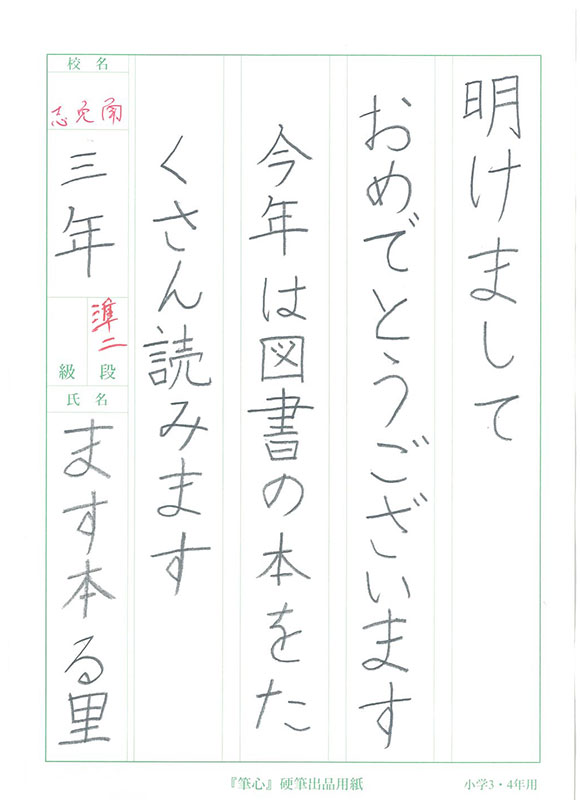 明けまして
おめでとうございます
今年は図書の本をた
くさん読みます
校名
志免南
三年
準二
段
級
氏名
ます本る里
『筆心』硬筆出品用紙
小学3・4年用